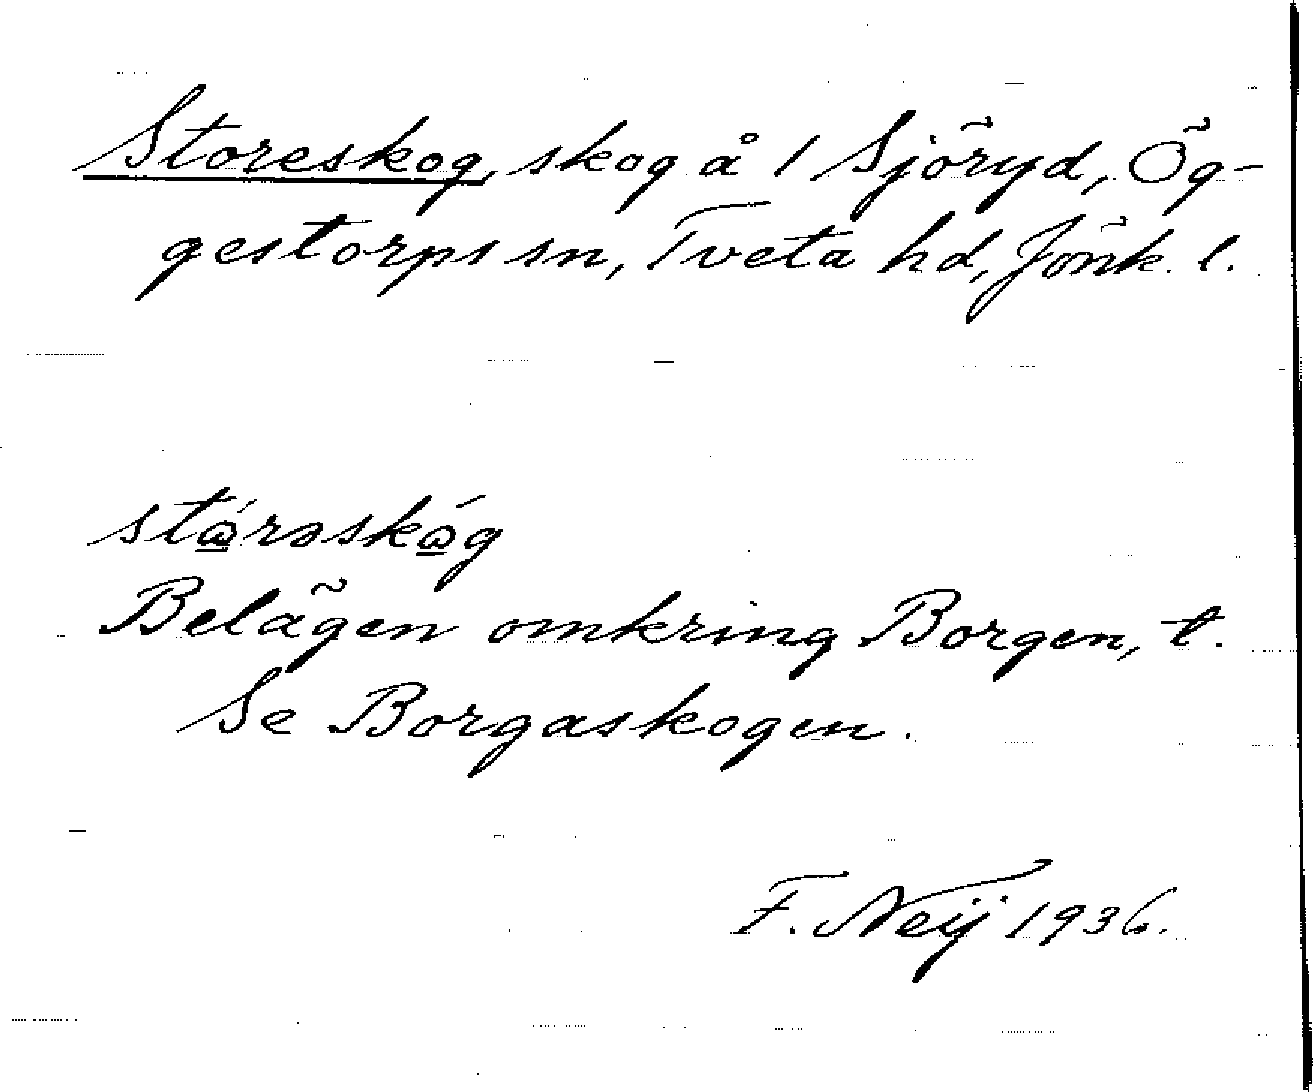 Storeskog, skog å 1 Sjöryd, Ög-
gestorps sn, Tveta hd, Jönk. l.
stώ̲rəskώ̲g
Belägen omkring Borgen, t.
Se Borgaskogen.
F. Neij 1936.